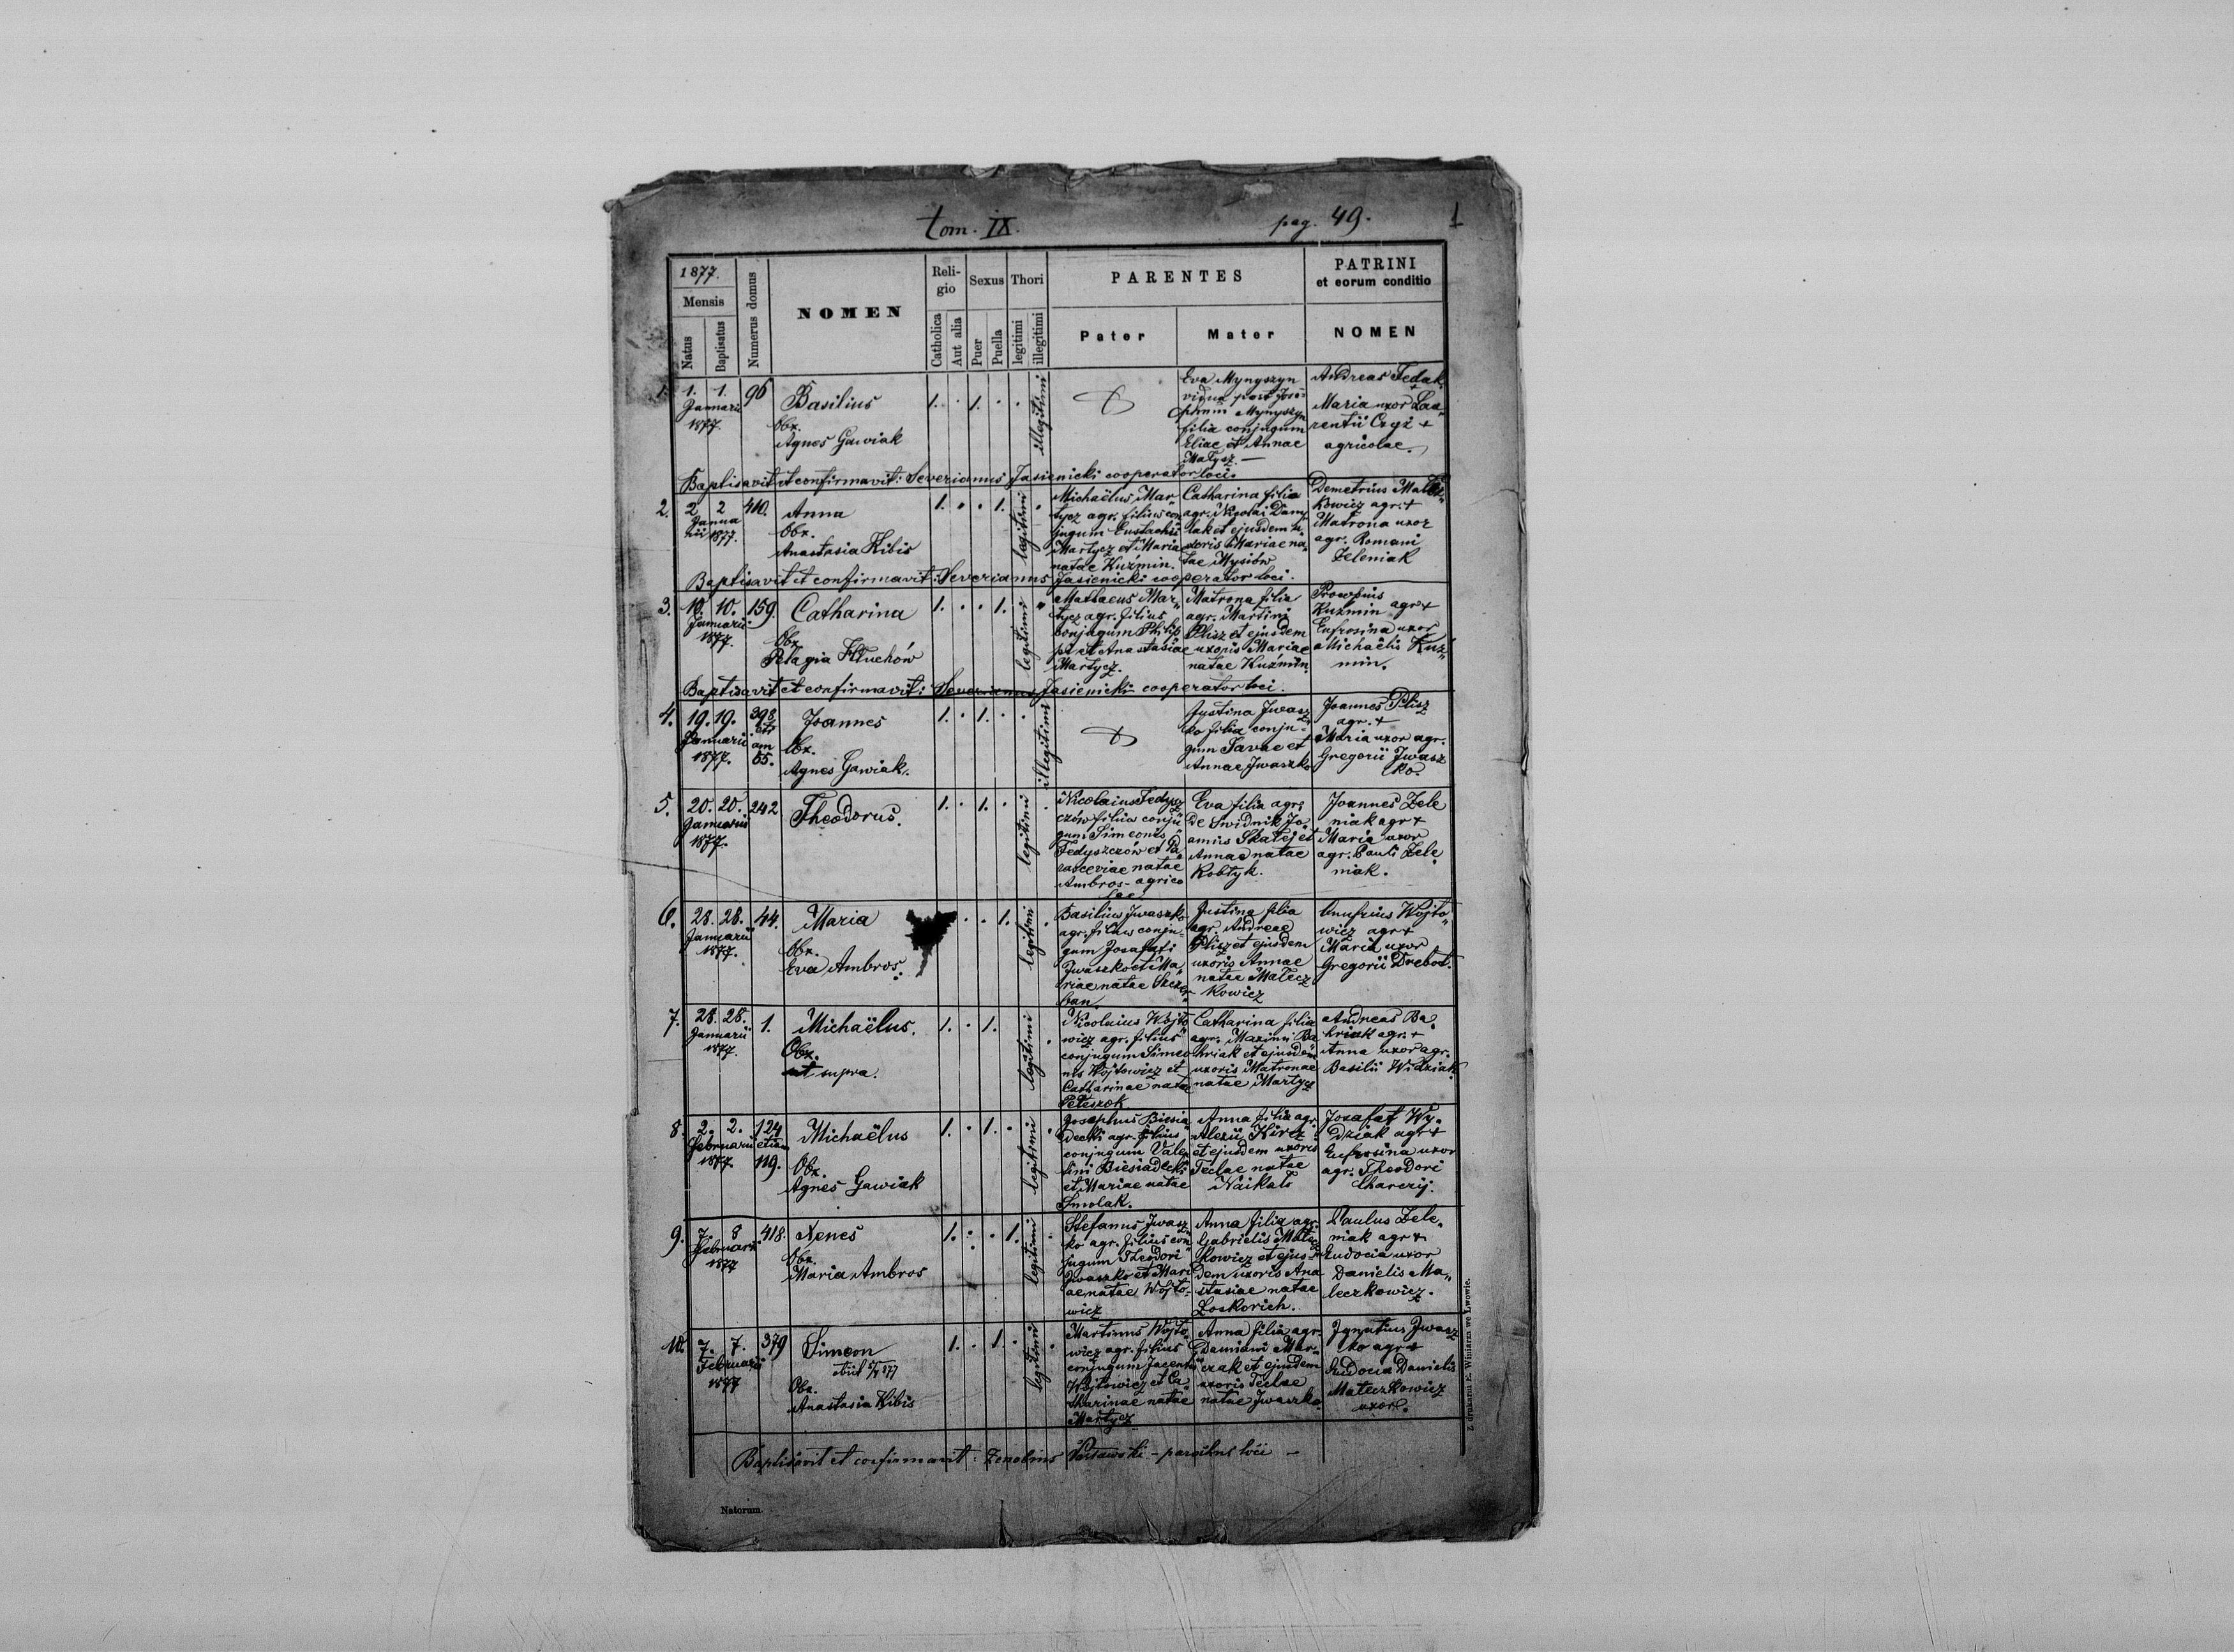 tom. IX. pag. 49. 1
1877.
Mensis
Natus
Baptisatus
Numerus domus
NOMEN
Religio
Catholica
Aut alia
Sexus
Puer
Puella
Thori
legitimi
illegitimi
PARENTES
Pater
Mater
PATRINI
et eorum conditio
NOMEN
1.
1. 1.
Januarii
1877.
96
Basilius
Obx.
Agnes Gawiak
1. . 1. . .
illegitimi
Eva Mynyszyn
vidua post Jose-
phum Mynyszyn
filia conjugum
Eliae et Annae
Małysz. —
Andreas Fedak
+
Maria uxor Lau„
rentii Czyż +
agricolae.
Baptisavit et confirmavit: Severianus Jasienicki cooperator loci.
2.
2 2
Janua
rii 1877.
410.
Anna
Obx.
Anastasia Kibis
1. . . 1.
legitimi
.
Michaëlus Mar„
tycz agr. filius con
jugum Eustachii
Martycz et Maria
natae Kuźmin.
Catharina filia
agr. Nicolai Dany
lak et ejusdem u„
xoris Mariae na„
tae Mysiów
Demetrius Małecz„
kowicz agr. +
Matrona uxor
agr. Romani
Zeleniak
Baptisavit et confirmavit: Severianus Jasienicki cooperator loci.
3.
10. 10.
Januarii
1877.
159.
Catharina
Obx.
Pelagia Hluchów
1. . . 1.
legitimi
Mathaeus Mar„
tycz agr. filius
conjugum Philip
pi et Anastasiae
Martycz.
Matrona filia
agr. Martini
Plisz et ejusdem
uxoris Mariae
natae Kuźmin.
Kuzmin agr +
Eufrosina uxor
Michaëlis Kuz„
min.
Baptisavit et confirmavit: Severianus Jasienicki cooperator loci.
4.
19. 19.
Januarii
1877.
398
eti
am
65.
Joannes
Obx.
Agnes Gawiak.
1. . 1. . .
illegitimi
Justina Jwasz„
ko filia conju„
gum Savae et
Annae Jwaszko
Joannes Plisz
agr. +
Maria uxor agr.
Gregorii Jwasz
ko.
5.
20. 20.
Januarii
1877.
242
Theodorus.
1. . 1. .
legitimi
.
Nicolaius Fedysz
czów filius conju
gum Simeonis
Fedyszczów et Pa
rasceviae natae
Ambros - agrico
lae
Eva filia agr.
de Swidnik Jo
annis Skałej et
Annae natae
Kobłyk.
Joannes Zele
niak agr +
Maria uxor
agr. Pauli Zele
niak.
6.
28. 28.
Januarii
1877.
44.
Maria
Obx.
Eva Ambros.
. . 1.
legitimi
.
Basilius Jwaszko
agr. filius conju„
gum Josafati
Jwaszko et Ma„
riae natae Szczer
ban.
Justina filia
agr. Andreae
Plisz et ejusdem
uxoris Annae
natae Małecz
kowicz
Onufrius Wojto„
wicz agr +
Maria uxor
Gregorii Drebot.
7.
28. 28.
Januarii
1877.
1.
Michaëlus.
Obx.
ut supra.
1. . 1.
legitimi
.
Nicolaius Wojto
wicz agr. filius
conjugum Simeo
nis Wojtowicz et
Catharinae natae
Peleszok
Catharina filia
agr. Maximi Ba
hriak et ejusdem
uxoris Matronae
natae Martycz
Andreas Ba„
hriak agr. +
Anna uxor agr.
Basilii Widziak
8.
2. 2.
Februarii
1877
124
etiam
119.
Michaëlus
Obx.
Agnes Gawiak
1. . 1. .
legitimi
.
Josephus Biesia
decki agr. filius
conjugum Valen
tini Biesiadecki
et Mariae natae
Smolak.
Anna filia agr.
Alexii Hirez
et ejusdem uxoris
Teclae natae
Josafat Wy„
dziak agr +
Eufrosina uxor
agr. Theodori
9.
7. 8
Februarii
1877
418.
Xenes
Obx.
Maria Ambros
1. . . 1.
legitimi
.
Stefanus Jwasz
ko agr. filius con
jugum Theodori
Jwaszko et Mari
ae natae Wojto„
wicz
Anna filia agr.
Gabrielis Małecz
kowicz et ejus„
dem uxoris Ana
stasiae natae
Loskorich.
Paulus Zele„
niak agr +
Eudocia uxor
Danielis Ma„
leczkowicz.
10.
7. 7.
Februarii
1877
379
Simeon
Obx.
Anastasia Kibis
1. . 1. .
legitimi
.
Martinus Wojto„
wicz agr. filius
conjugum Jacenti
Wojtowicz et Ca„
tharinae natae
Martycz
Anna filia agr.
Damiani Mar„
czak et ejusdem
uxoris Teclae
natae Jwaszko.
Jgnatius Jwasz
ko agr +
Eudocia Danielis
Małeczkowicz
uxor.
Baptisavit et confirmavit: Zenobius - parochus loci -
Natorum.
Z drukarni E. Winiarza we Lwowie.